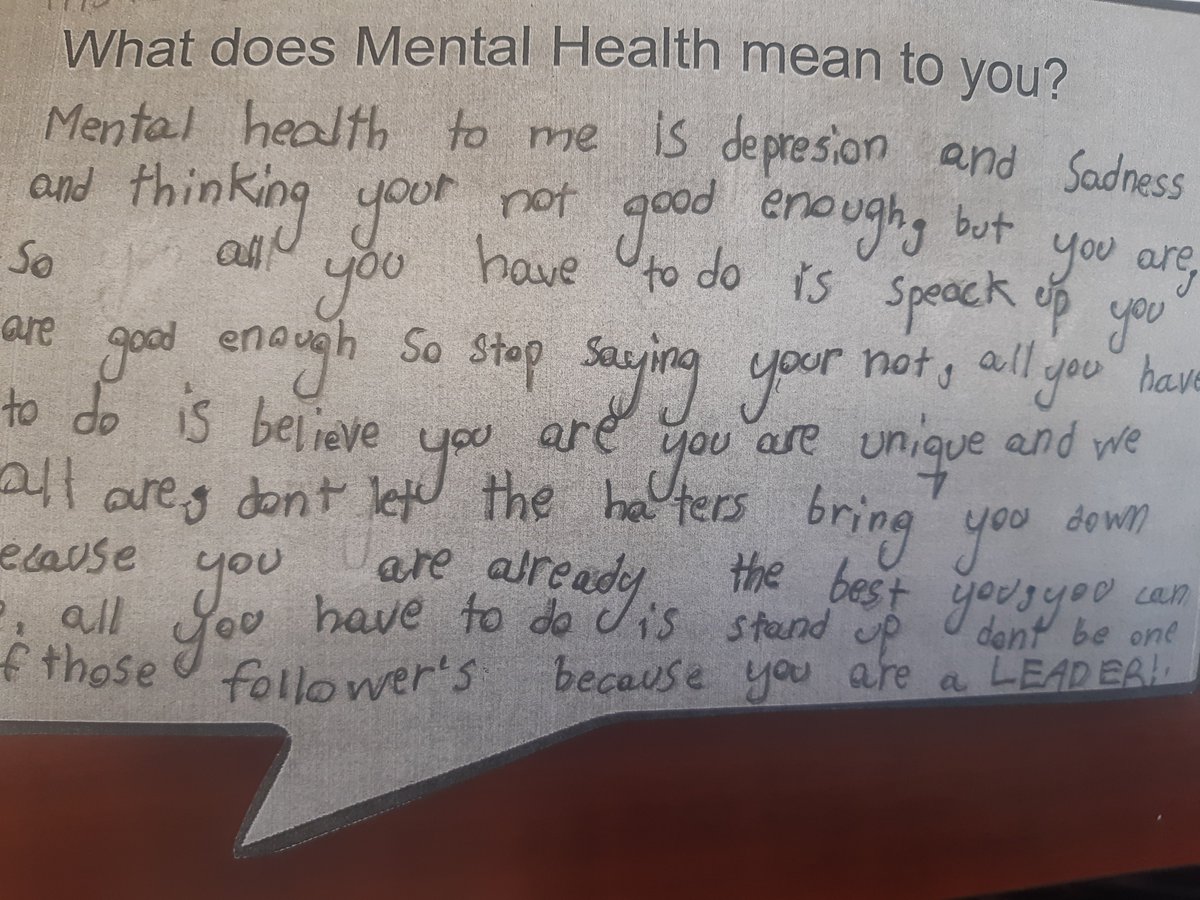 What does Mental Health mean to you?
Mental health to me is depresion and Sadness
and thinking your not good enough, but you are,
So all you have to do is speack up you
are good enough So stop saying your not, all you have
to do is believe you are you are unique and we
all are, dont let the haters bring you down
ecause you are already the best you, you can
, all you have to do is stand up dont be one
f those follower's because you are a LEADER!